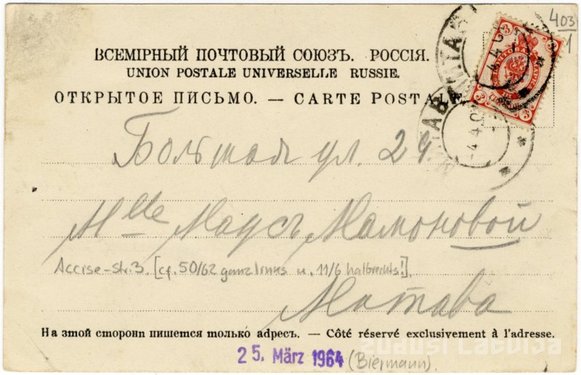 403
1
ВСЕМІРНЫЙ ПОЧТОВЫЙ СОЮЗЪ. РОССІЯ.
UNION POSTALE UNIVERSELLE RUSSIE.
ОТКРЫТОЕ ПИСЬМО. — CARTE POSTA
Большая ул. 24.
Mlle Маусъ Мамоновой
Accise-str. 3. [cf. 50/62 ganz links u. 11/6 halbrechts!]
Митава
На этой сторонѣ пишется только адресъ. — Côté réservé exclusivement à l'adresse.
25. März 1964 (Biermann).